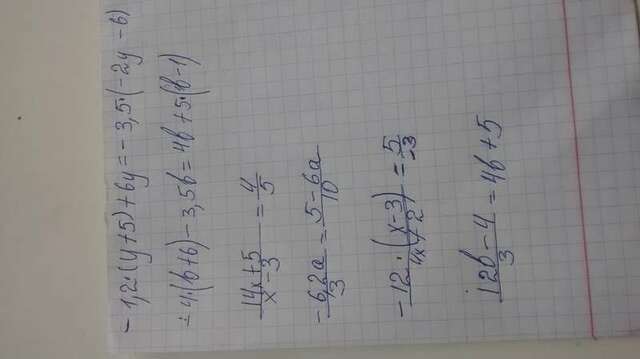 -1,2·(y+5)+6y=-3,5·(-2y-6)
-4·(b+6)-3,5b=4b+5·(b-1)
14x+5/x-3=4/5
-6,2a/3=5-6a/10
-12·(x-3)/4x+2=5/-3
12b-4/3=4b+5